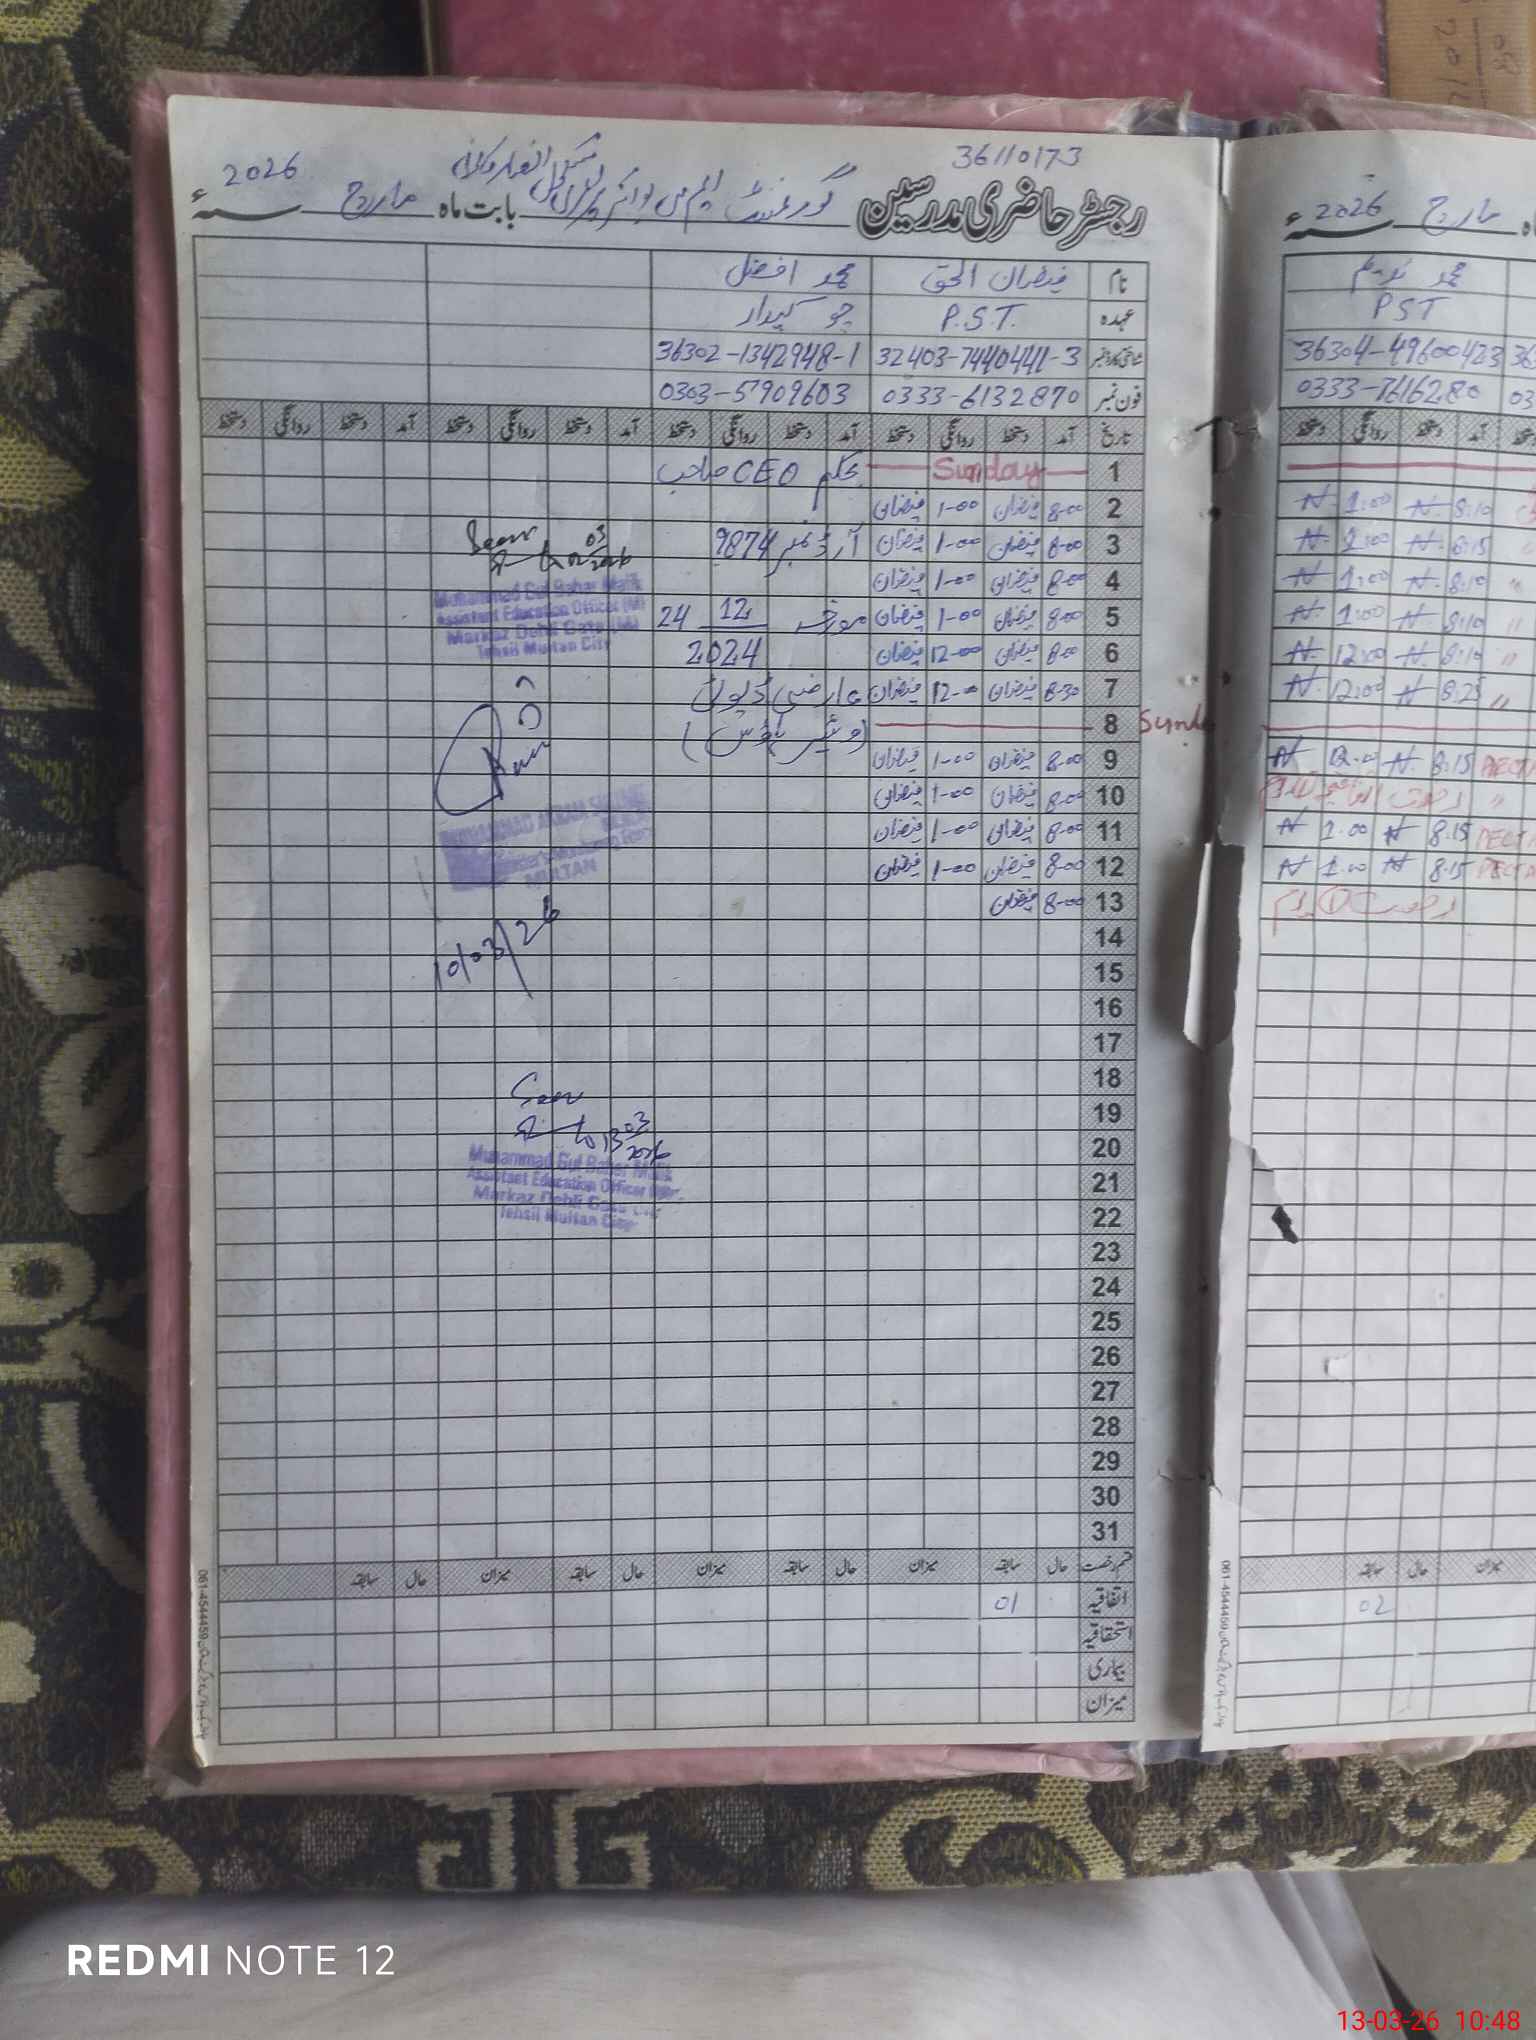 36110173
رجسٹر حاضری مدرسین گورنمنٹ ایم سی بوائز پرائمری سکول بابت ماہ مارچ 2026ء
نام فیضان الحق محمد افضل
عہدہ P.S.T. چوکیدار
شناختی کارڈ نمبر 32403-7440441-3 36302-1342948-1
فون نمبر 0333-6132870 0303-57909603
تاریخ آمد دستخط روانگی دستخط آمد دستخط روانگی دستخط آمد دستخط روانگی دستخط آمد دستخط روانگی دستخط
1 Sunday بحکم CEO صاحب
2 8-00 فیضان 1-00 فیضان
3 8-00 فیضان 1-00 فیضان آرڈر نمبر 9874
4 8-00 فیضان 1-00 فیضان
5 8-00 فیضان 1-00 فیضان مورخہ 24 12
6 8-00 فیضان 12-00 فیضان 2024
7 8-30 فیضان 12-00 فیضان عارضی ڈیوٹی
8 Sunday
9 8-00 فیضان 1-00 فیضان
10 8-00 فیضان 1-00 فیضان
11 8-00 فیضان 1-00 فیضان
12 8-00 فیضان 1-00 فیضان
13 8-00 فیضان
14
15
16
17
18
19
20
21
22
23
24
25
26
27
28
29
30
31
قسم رخصت حال سابقہ میزان حال سابقہ میزان حال سابقہ میزان حال سابقہ
اتفاقیہ 01
استحقاقیہ
بیماری
میزان
Seen
03
2026
Muhammad Gul Bahar Malik
Assistant Education Officer (M)
Markaz Dehli Gate (M)
Tehsil Multan City
MULTAN
10/03/26
Seen
13 03
2026
Muhammad Gul Bahar Malik
Assistant Education Officer
Markaz Dehli Gate
Tehsil Multan City
061-4544459
مارچ 2026ء
محمد ندیم
PST
36304-49600423
0333-7616280
دستخط آمد دستخط روانگی دستخط
8:10 N. 1:00 N.
8:15 N. 1:00 N
8:10 N. 1:00 N
8:10 N. 1:00 N
8:10 N. 12:00 N
8:25 N 12:00 N.
8.15 N. 12.00 N
رخصت اتفاقیہ
8.15 N 1.00 N
8.15 N 1.00 N
رخصت
سابقہ حال میزان
02
061-4544459
08
201
REDMI NOTE 12
13-03-26 10:48